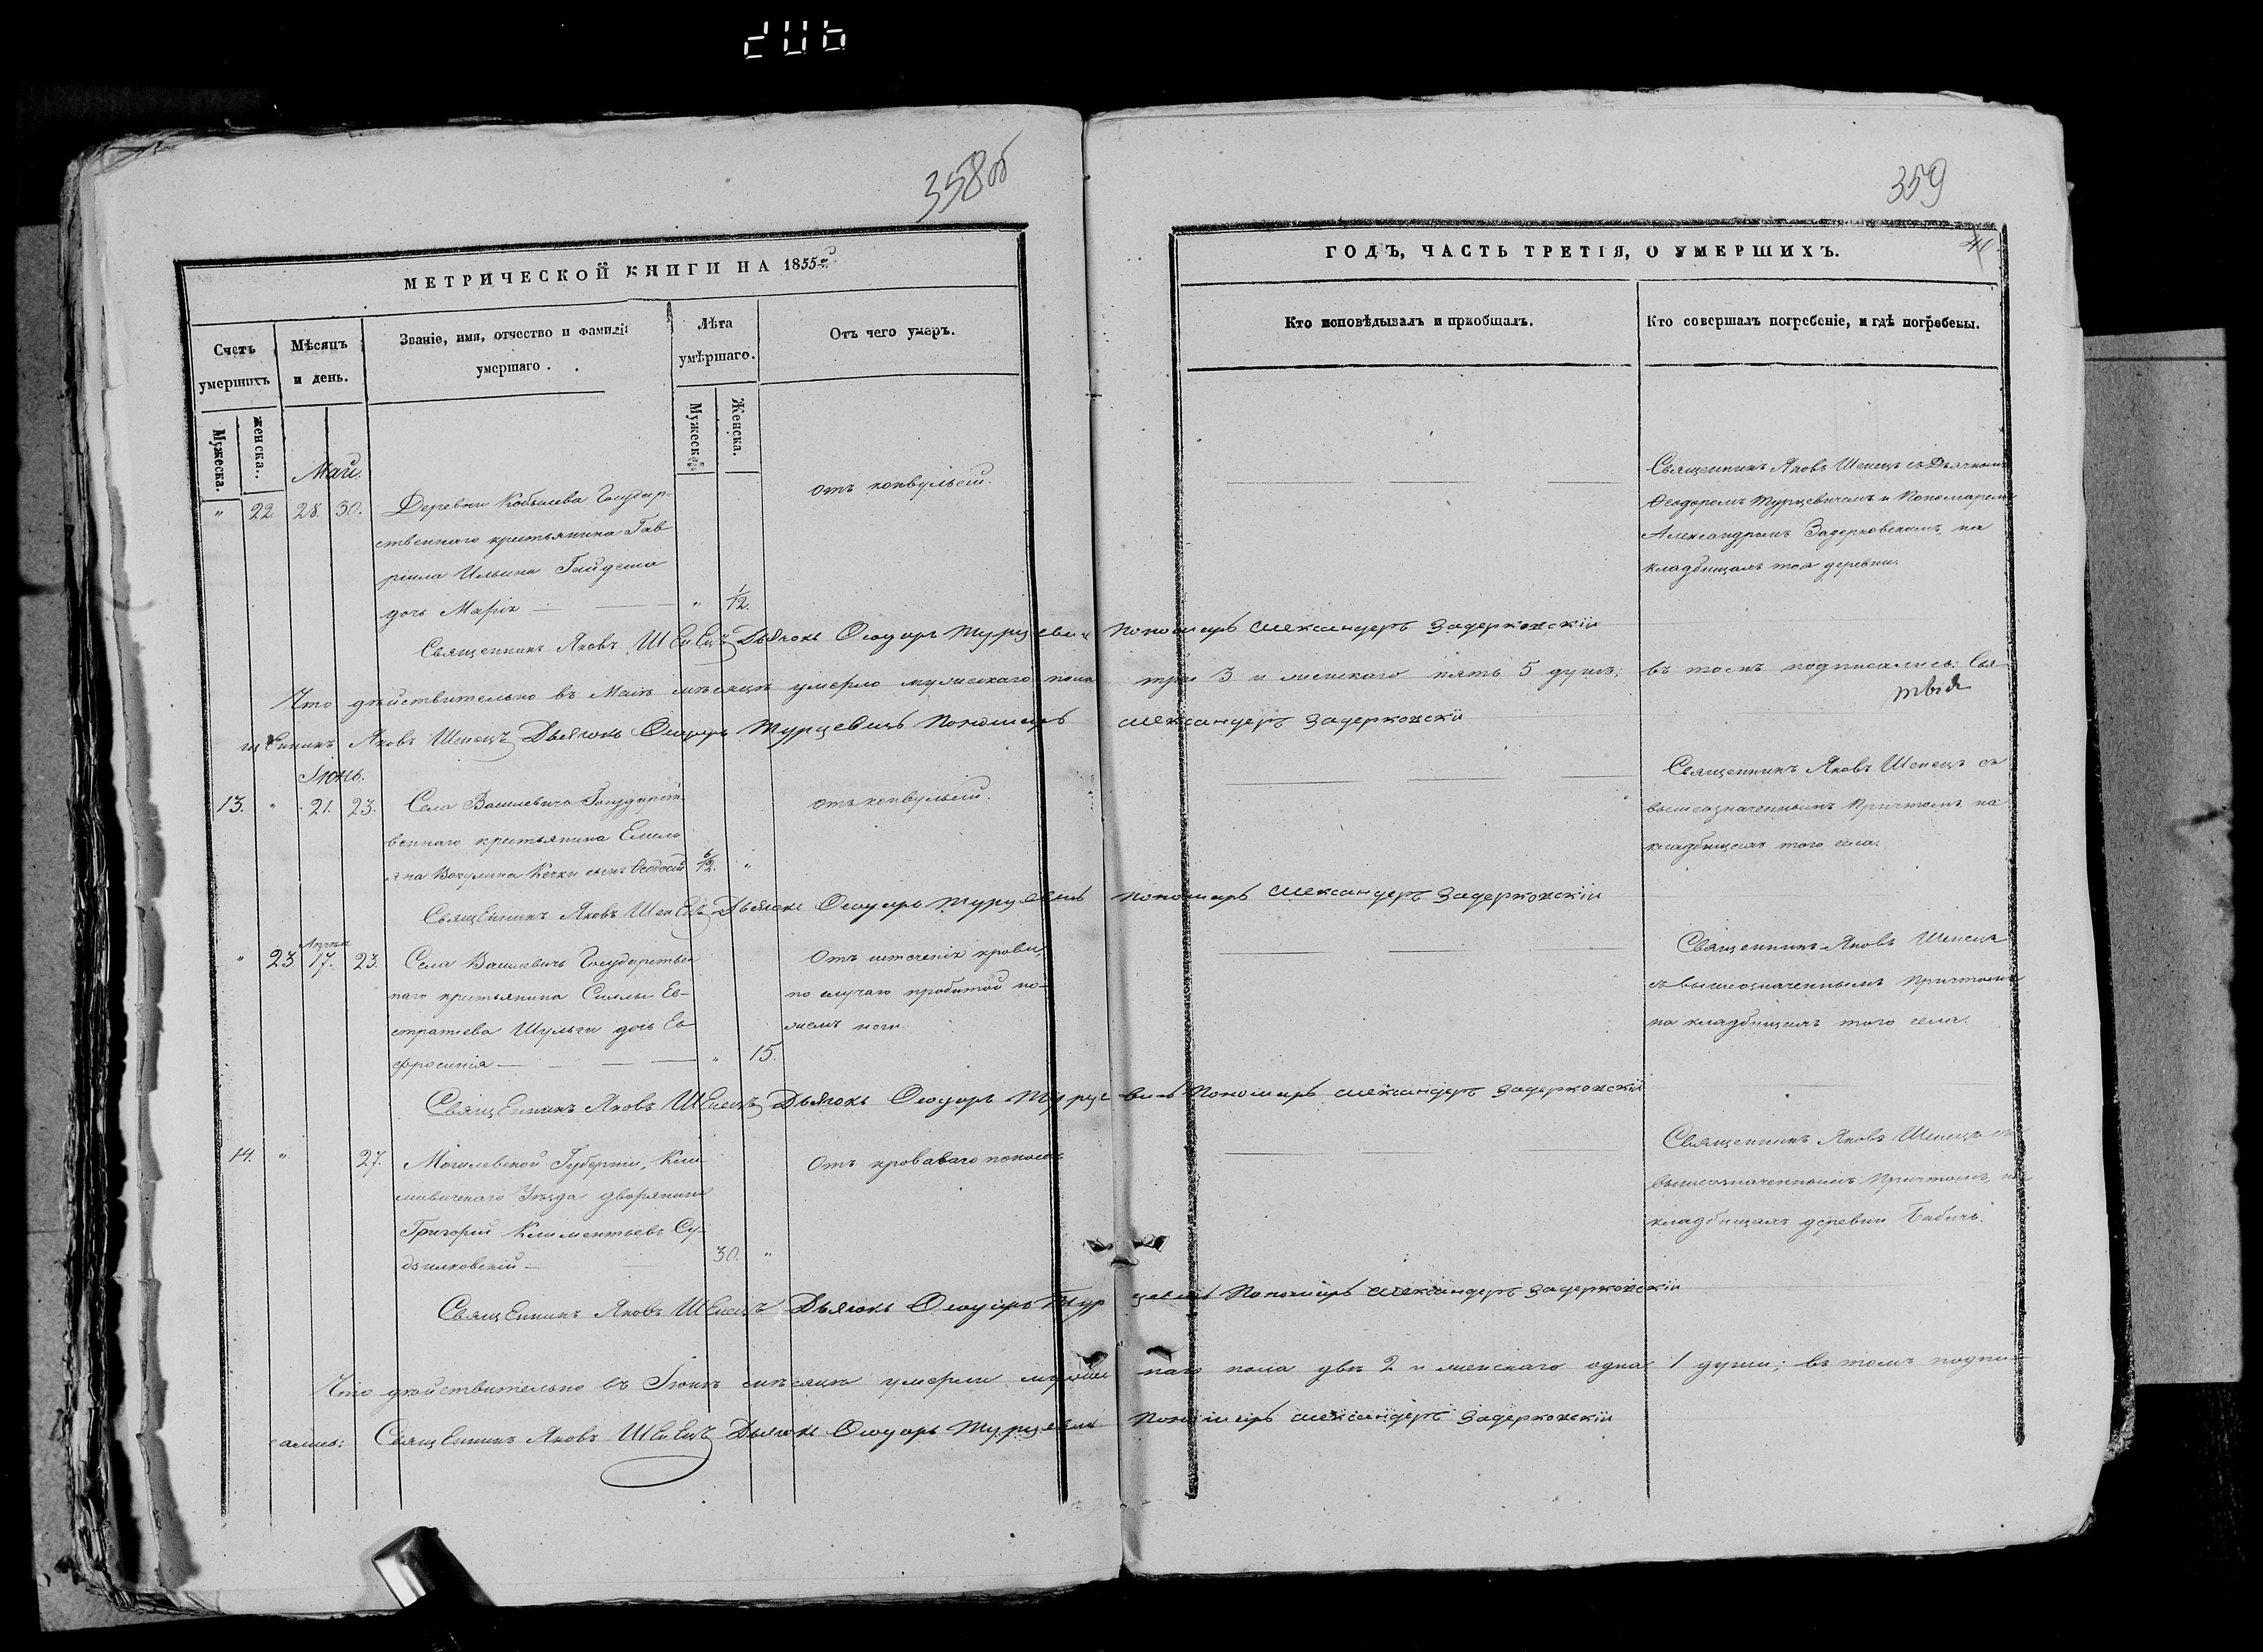 206
358об
359
40
МЕТРИЧЕСКОЙ КНИГИ НА 1855й
ГОДЪ, ЧАСТЬ ТРЕТІЯ, О УМЕРШИХЪ.
Счетъ умершихъ
Мужеска.
женска.
Мѣсяцъ и день.
Званіе, имя, отчество и фамилія умершаго.
Лѣта умѣршаго.
Мужеска.
Женска.
Отъ чего умеръ.
Кто исповѣдывалъ и пріобщалъ.
Кто совершалъ погребеніе, и гдѣ погребены.
Май.
" 22. 28. 30. Деревни Кобылева Государ-
ственнаго крестьянина Гав-
ріила Ильина Гайдеша
дочь Марія — " 1/12.
отъ конвульсій.
Священникъ Яковъ Шепецъ съ Дьячкомъ
Ѳеодоромъ Турцевичемъ и Пономаремъ
Александромъ Задерковскимъ, на
кладбищахъ тоя деревни.
Священникъ Яковъ Шепецъ Дьячокъ Ѳеодоръ Турцевичъ Пономаръ Александеръ Задерковскій
Что дѣйствительно въ Маѣ мѣсяцѣ умерло мужескаго пола три 3 и женскаго пять 5 душъ; въ томъ подписались: Свя-
щенникъ Яковъ Шепецъ Дьячокъ Ѳеодоръ Турцевичъ Пономаръ Александеръ Задерковскій
Іюнь.
13. " 21. 23. Села Василевичъ Государст-
веннаго крестьянина Емель-
яна Вакулина Кечки сынъ Ѳеодосій 6/12. "
отъ конвульсій.
Священникъ Яковъ Шепецъ съ
вышеозначеннымъ Причтомъ на
кладбищахъ того села.
Священникъ Яковъ Шепецъ Дьячокъ Ѳеодоръ Турцевичъ Пономаръ Александеръ Задерковскій
" 23. 17. 23. Села Василевичъ Государствен
наго крестьянина Силы Ев-
стратіева Шульги дочь Ев-
фросинія — " 15.
Отъ истеченія крови,
по случаю пробитой но-
жемъ ноги.
Священникъ Яковъ Шепецъ
съ вышеозначеннымъ Причтомъ
на кладбищахъ того села.
Священникъ Яковъ Шепецъ Дьячокъ Ѳеодоръ Турцевичъ Пономаръ Александеръ Задерковскій
14. " 27. Могилевской Губерніи, Кли-
мовичскаго Уѣзда дворянинъ
Григорій Климентьевъ Су-
дзиловскій — 30. "
Отъ кроваваго поноса
Священникъ Яковъ Шепецъ съ
вышеозначеннымъ Причтомъ, на
кладбищахъ деревни Бабичъ.
Священникъ Яковъ Шепецъ Дьячокъ Ѳеодоръ Турцевичъ Пономаръ Александеръ Задерковскій
Что дѣйствительно въ Іюнѣ мѣсяцѣ умерли мужескаго пола двѣ 2 и женскаго одна 1 душа: въ томъ подпи-
сались: Священникъ Яковъ Шепецъ Дьячокъ Ѳеодоръ Турцевичъ Пономаръ Александеръ Задерковскій